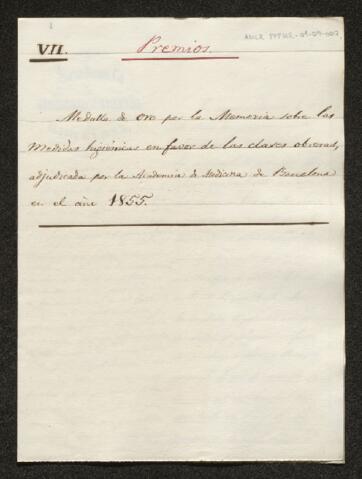 VII.
Premios.
Medalla de oro por la Memoria sobre las
Medidas higiénicas en favor de las clases obreras,
adjudicada por la Academia de Medicina de Barcelona
en el año 1855.